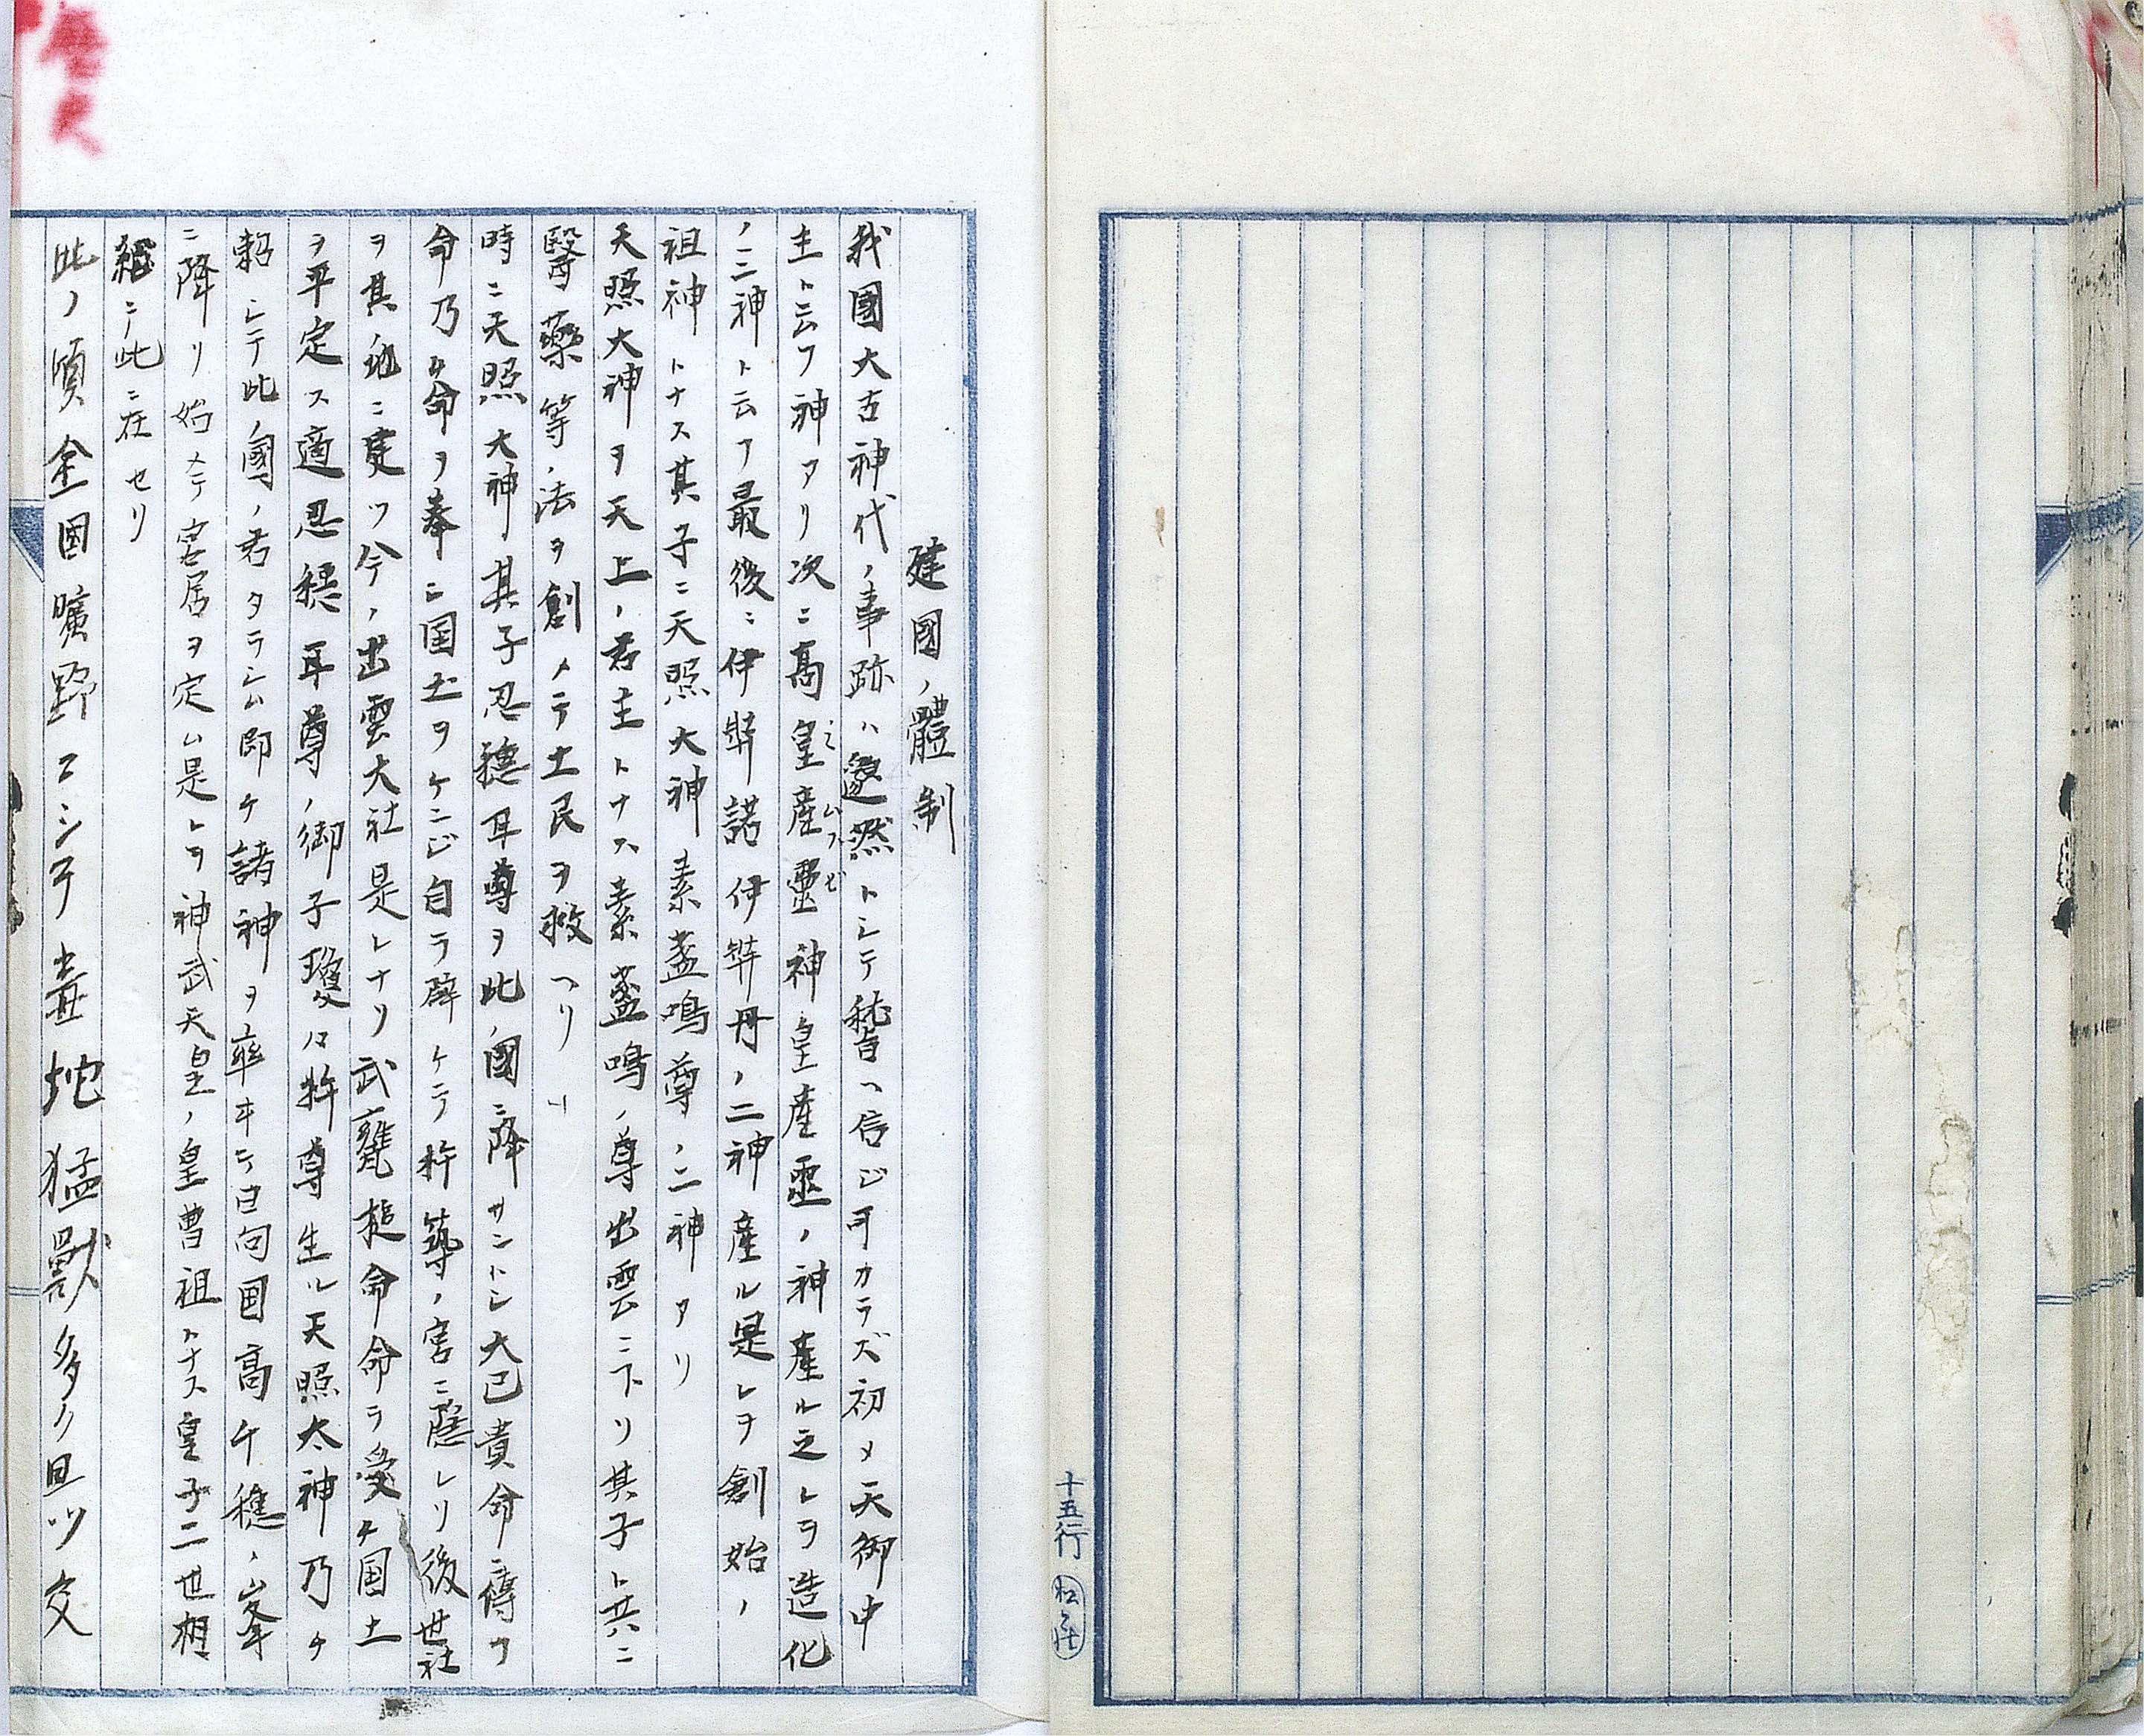 十五行
建國ノ體制
我國大古神代ノ事跡ハ邈然トシテ稽ヘ信ジ可カラズ初メ天御中
主ト云フ神アリ次ニ高皇産靈神皇産靈ノ神産ル之レヲ造化
ノ三神ト云フ最後ニ伊弉諾伊弉冊ノ二神産ル是レヲ創始ノ
祖神トナス其子ニ天照大神素盞鳴尊ノ二神アリ
天照大神ヲ天上ノ君主トナス素盞鳴ノ尊出雲ニ下リ其子ト共ニ
醫藥等ノ法ヲ創メテ土民ヲ救ヘリ
時ニ天照大神其子忍穂耳尊ヲ此ノ國ニ降サントシ大己貴命ニ傳フ
命乃ケ命ヲ奉ニ国土ヲケニジ自ラ辟ケテ杵築ノ宮ニ隠レリ後世社
ヲ其ノ地ニ建ツ今ノ出雲大社是レナリ武甕槌命命ヲ受ケ国土
ヲ平定ス適忍穂耳尊ノ御子瓊々杵尊生ル天照太神乃チ
勅シテ此ノ國ノ君タラシム即チ諸神ヲ率ヰテ日向国高千穂ノ峯
ニ降リ始メテ宮居ヲ定ム是レヲ神武天皇ノ皇曽祖トナス皇子二世相
継ニ此ニ在セリ
此ノ頃全国曠野ニシテ毒蛇猛獣多ク且ツ交